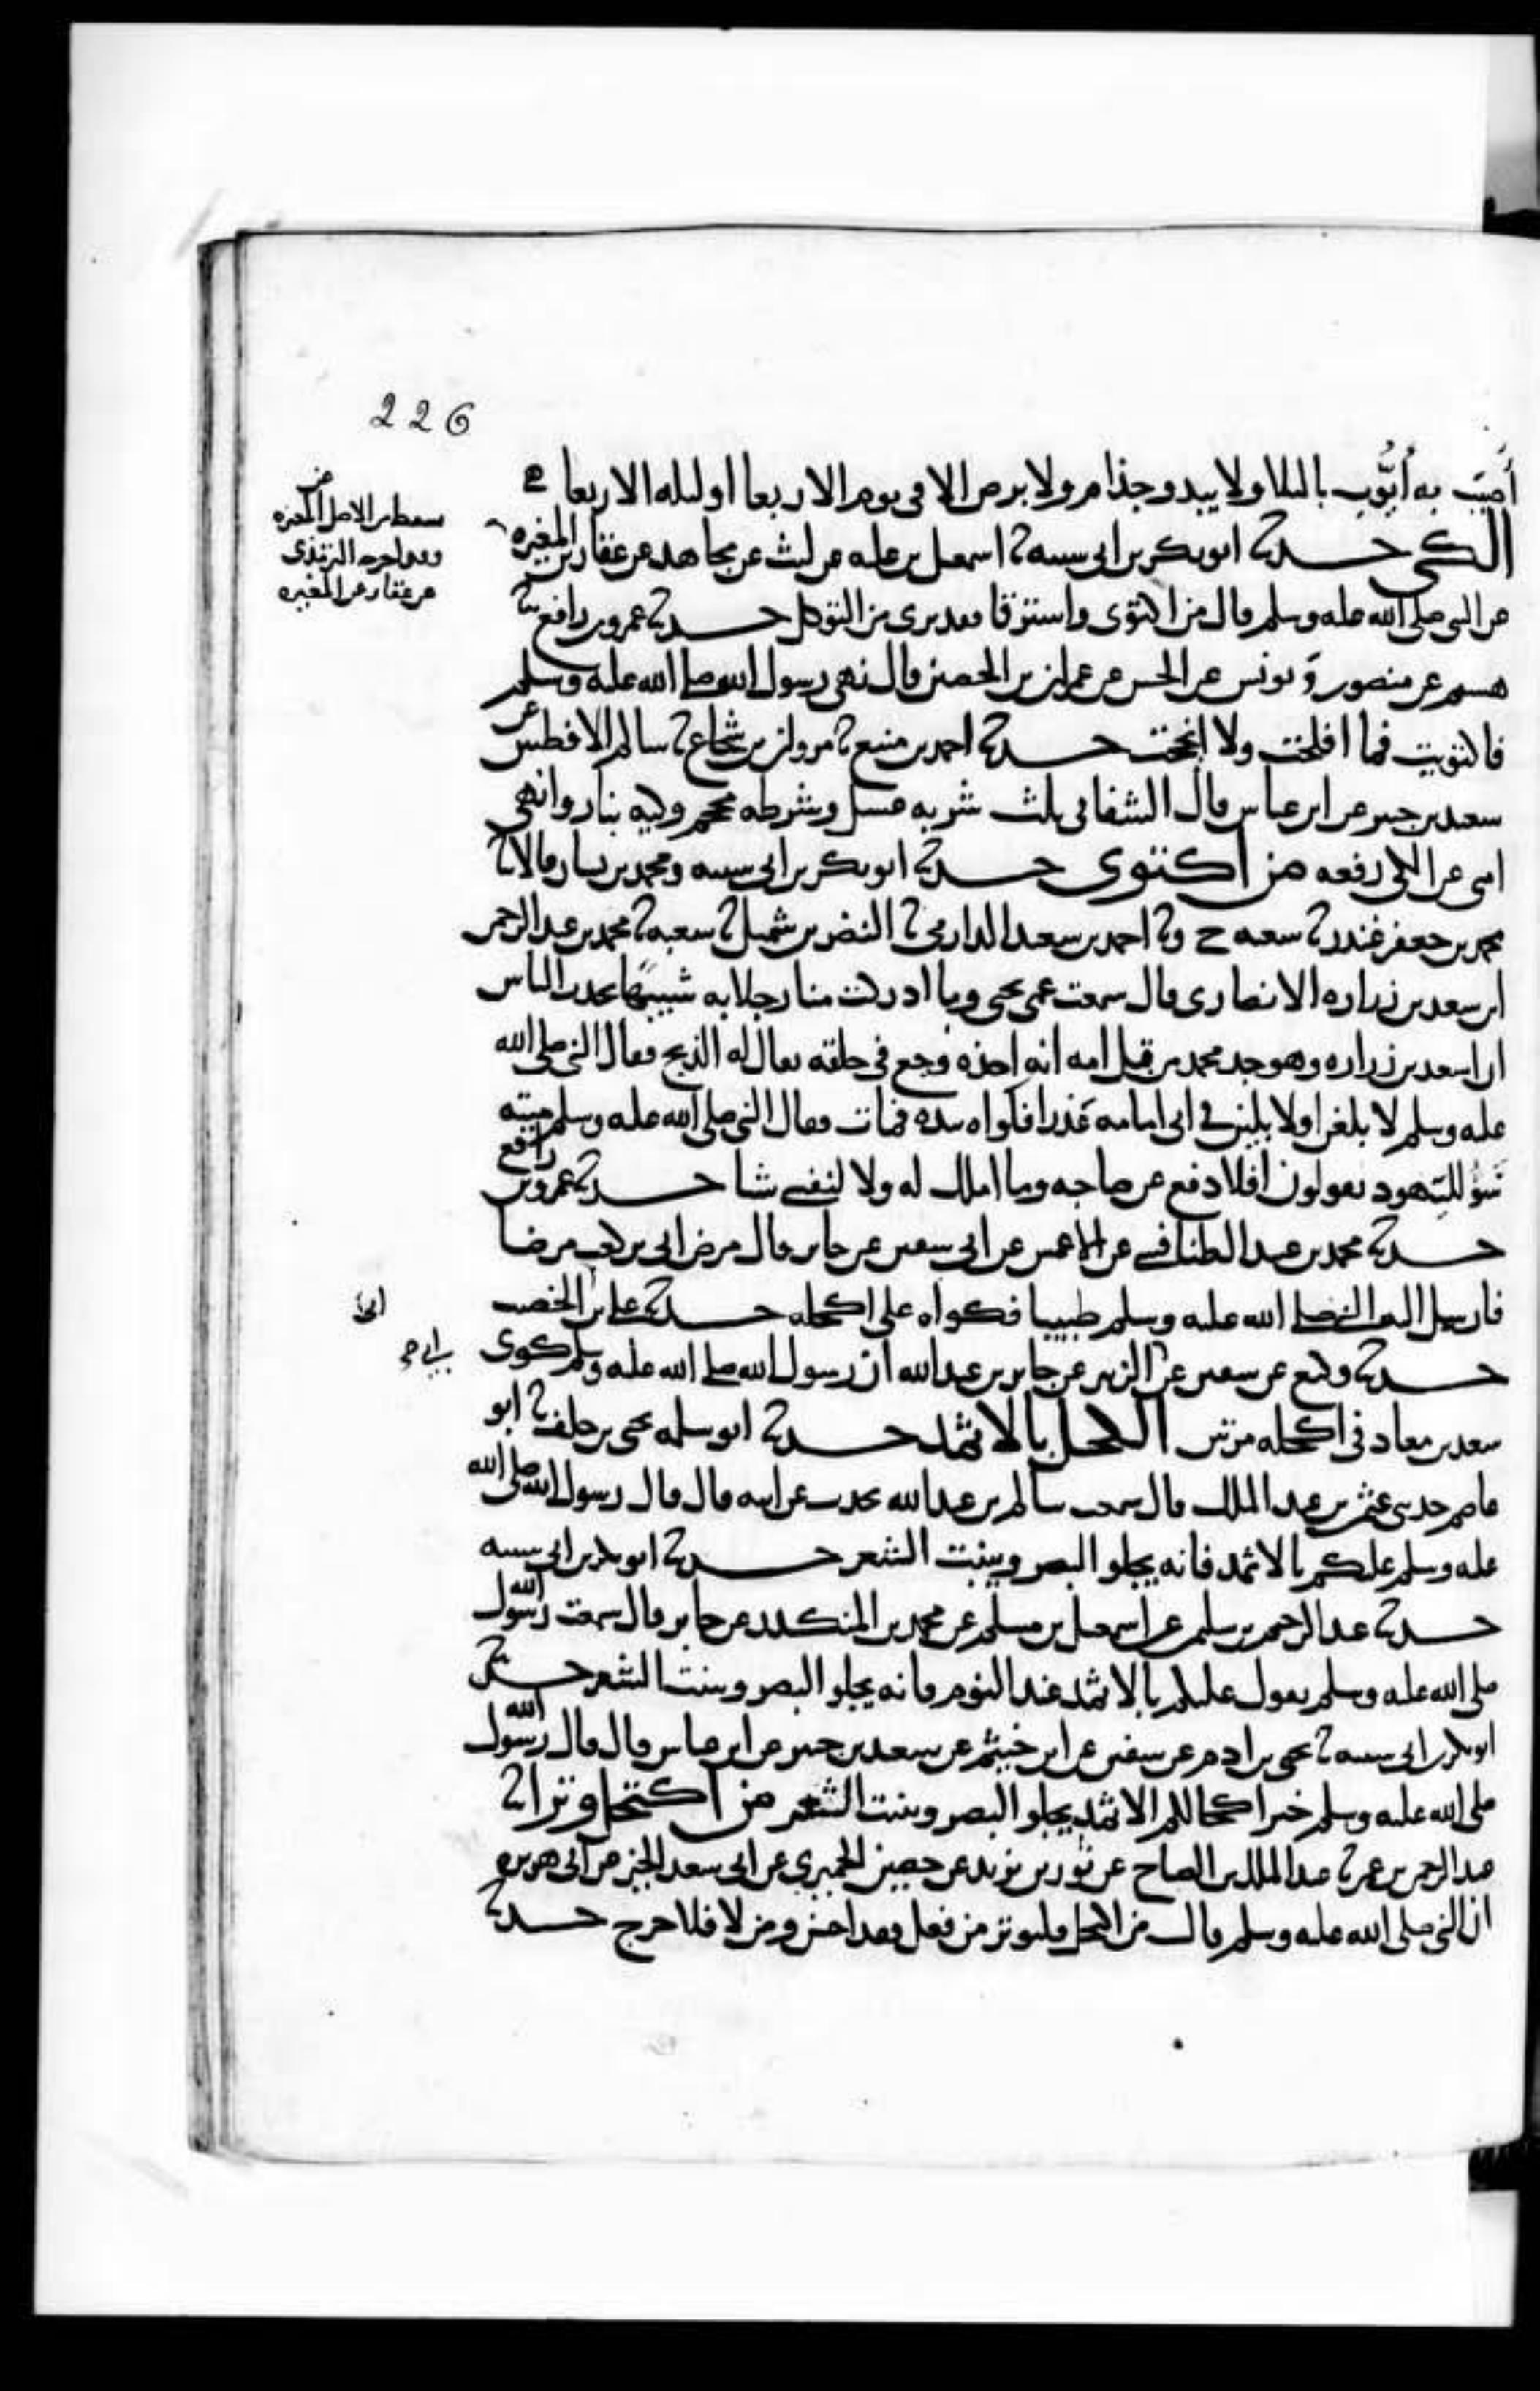 226
أُصِيبَ به أَيُّوب بالبلا ولا يبدو جذام ولا برص الا في يوم الاربعا او ليله الاربعا
الكي حدثنا ابو بكر بن ابي شيبه ثنا اسمعيل بن عليه عن ليث عن مجاهد عن عقار بن المغيره
عن النبي صلى الله عليه وسلم قال من اكتوى واسترقا فقد برى من التوكل حدثنا عمرو بن رافع ثنا
هشيم عن منصور وَ يونس عن الحسن عن عمران بن الحصين قال نهى رسول الله صلى الله عليه وسلم
فاكتويت فما افلحت ولا انجحت حدثنا احمد بن منيع ثنا مروان بن شجاع ثنا سالم الافطس عن
سعيد بن جبير عن ابن عباس قال الشفا في ثلث شربه عسل وشرطه محجم وكيه بنار وانهى
امتي عن الكي رفعه من اكتوى حدثنا ابو بكر بن ابي شيبه ومحمد بن بشار قالا ثنا
محمد بن جعفر غندر ثنا شعبه ح وثنا احمد بن سعيد الدارمي ثنا النضر بن شميل ثنا شعبه ثنا محمد بن عبد الرحمن
ابن سعد بن زراره الانصاري قال سمعت عمي يحيى وما ادركت منا رجلا به شبيهًا يحدث الناس
ان اسعد بن زراره وهو جد محمد من قبل امه انه اخذه وجع في حلقه يقال له الذبح فقال النبي صلى الله
عليه وسلم لا بلغن او لا بلين في ابي امامه عذرا فكواه بيده فمات فقال النبي صلى الله عليه وسلم ميته
سَوُ لليَهود يقولون افلا دفع عن صاحبه وما املك له ولا لنفسي شيا حدثنا عمرو بن رافع
حدثنا محمد بن عبيد الطنافسي عن الاعمش عن ابي سفين عن جابر قال مرض ابي بن كعب مرضا
فارسل اليه النبي صلى الله عليه وسلم طبيبا فكواه على اكحله حدثنا علي بن ابي الخصيب
حدثنا وكيع عن سفين عن ابي الزبير عن جابر بن عبد الله ان رسول الله صلى الله عليه وسلم كوى
سعد بن معاذ في اكحله مرتين الكحل بالاثمد حدثنا ابو سلمه يحيى بن خلف ثنا ابو
عاصم حدثني عثمن بن عبد الملك قال سمعت سالم بن عبد الله يحدث عن ابيه قال قال رسول الله صلى الله
عليه وسلم عليكم بالاثمد فانه يجلو البصر وينبت الشعر حدثنا ابو بكر بن ابي شيبه
حدثنا عبد الرحيم بن سليمن عن اسمعيل بن مسلم عن محمد بن المنكدر عن جابر قال سمعت رسول الله
صلى الله عليه وسلم يقول عليكم بالاثمد عند النوم فانه يجلو البصر وينبت الشعر حدثنا
ابو بكر بن ابي شيبه ثنا يحيى بن ادم عن سفين عن ابن خيثم عن سعيد بن جبير عن ابن عباس قال قال رسول الله
صلى الله عليه وسلم خير اكحالكم الاثمد يجلو البصر وينبت الشعر من اكتحل وترا ثنا
عبد الرحمن بن عمر ثنا عبد الملك بن الصباح عن ثور بن يزيد عن حصين الحميري عن ابي سعد الخير عن ابي هريره
ان النبي صلى الله عليه وسلم قال من اكتحل فليوتر من فعل فقد احسن ومن لا فلا حرج حدثنا
سقط من الاصل المغيره
وقد اخرجه الترمذي
عن عقار عن المغيره
ابي